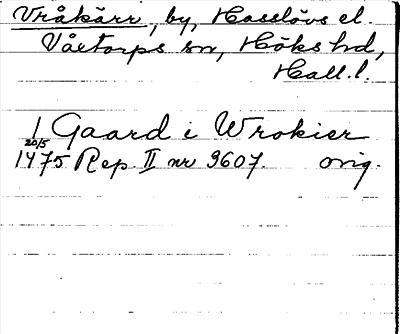 Vråkärr, by, Hasslövs el.
Våxtorps sn, Höks hd,
Hall. l.
1 Gaard i Wrokier
20/5
1475 Rep. II nr 3607. orig.